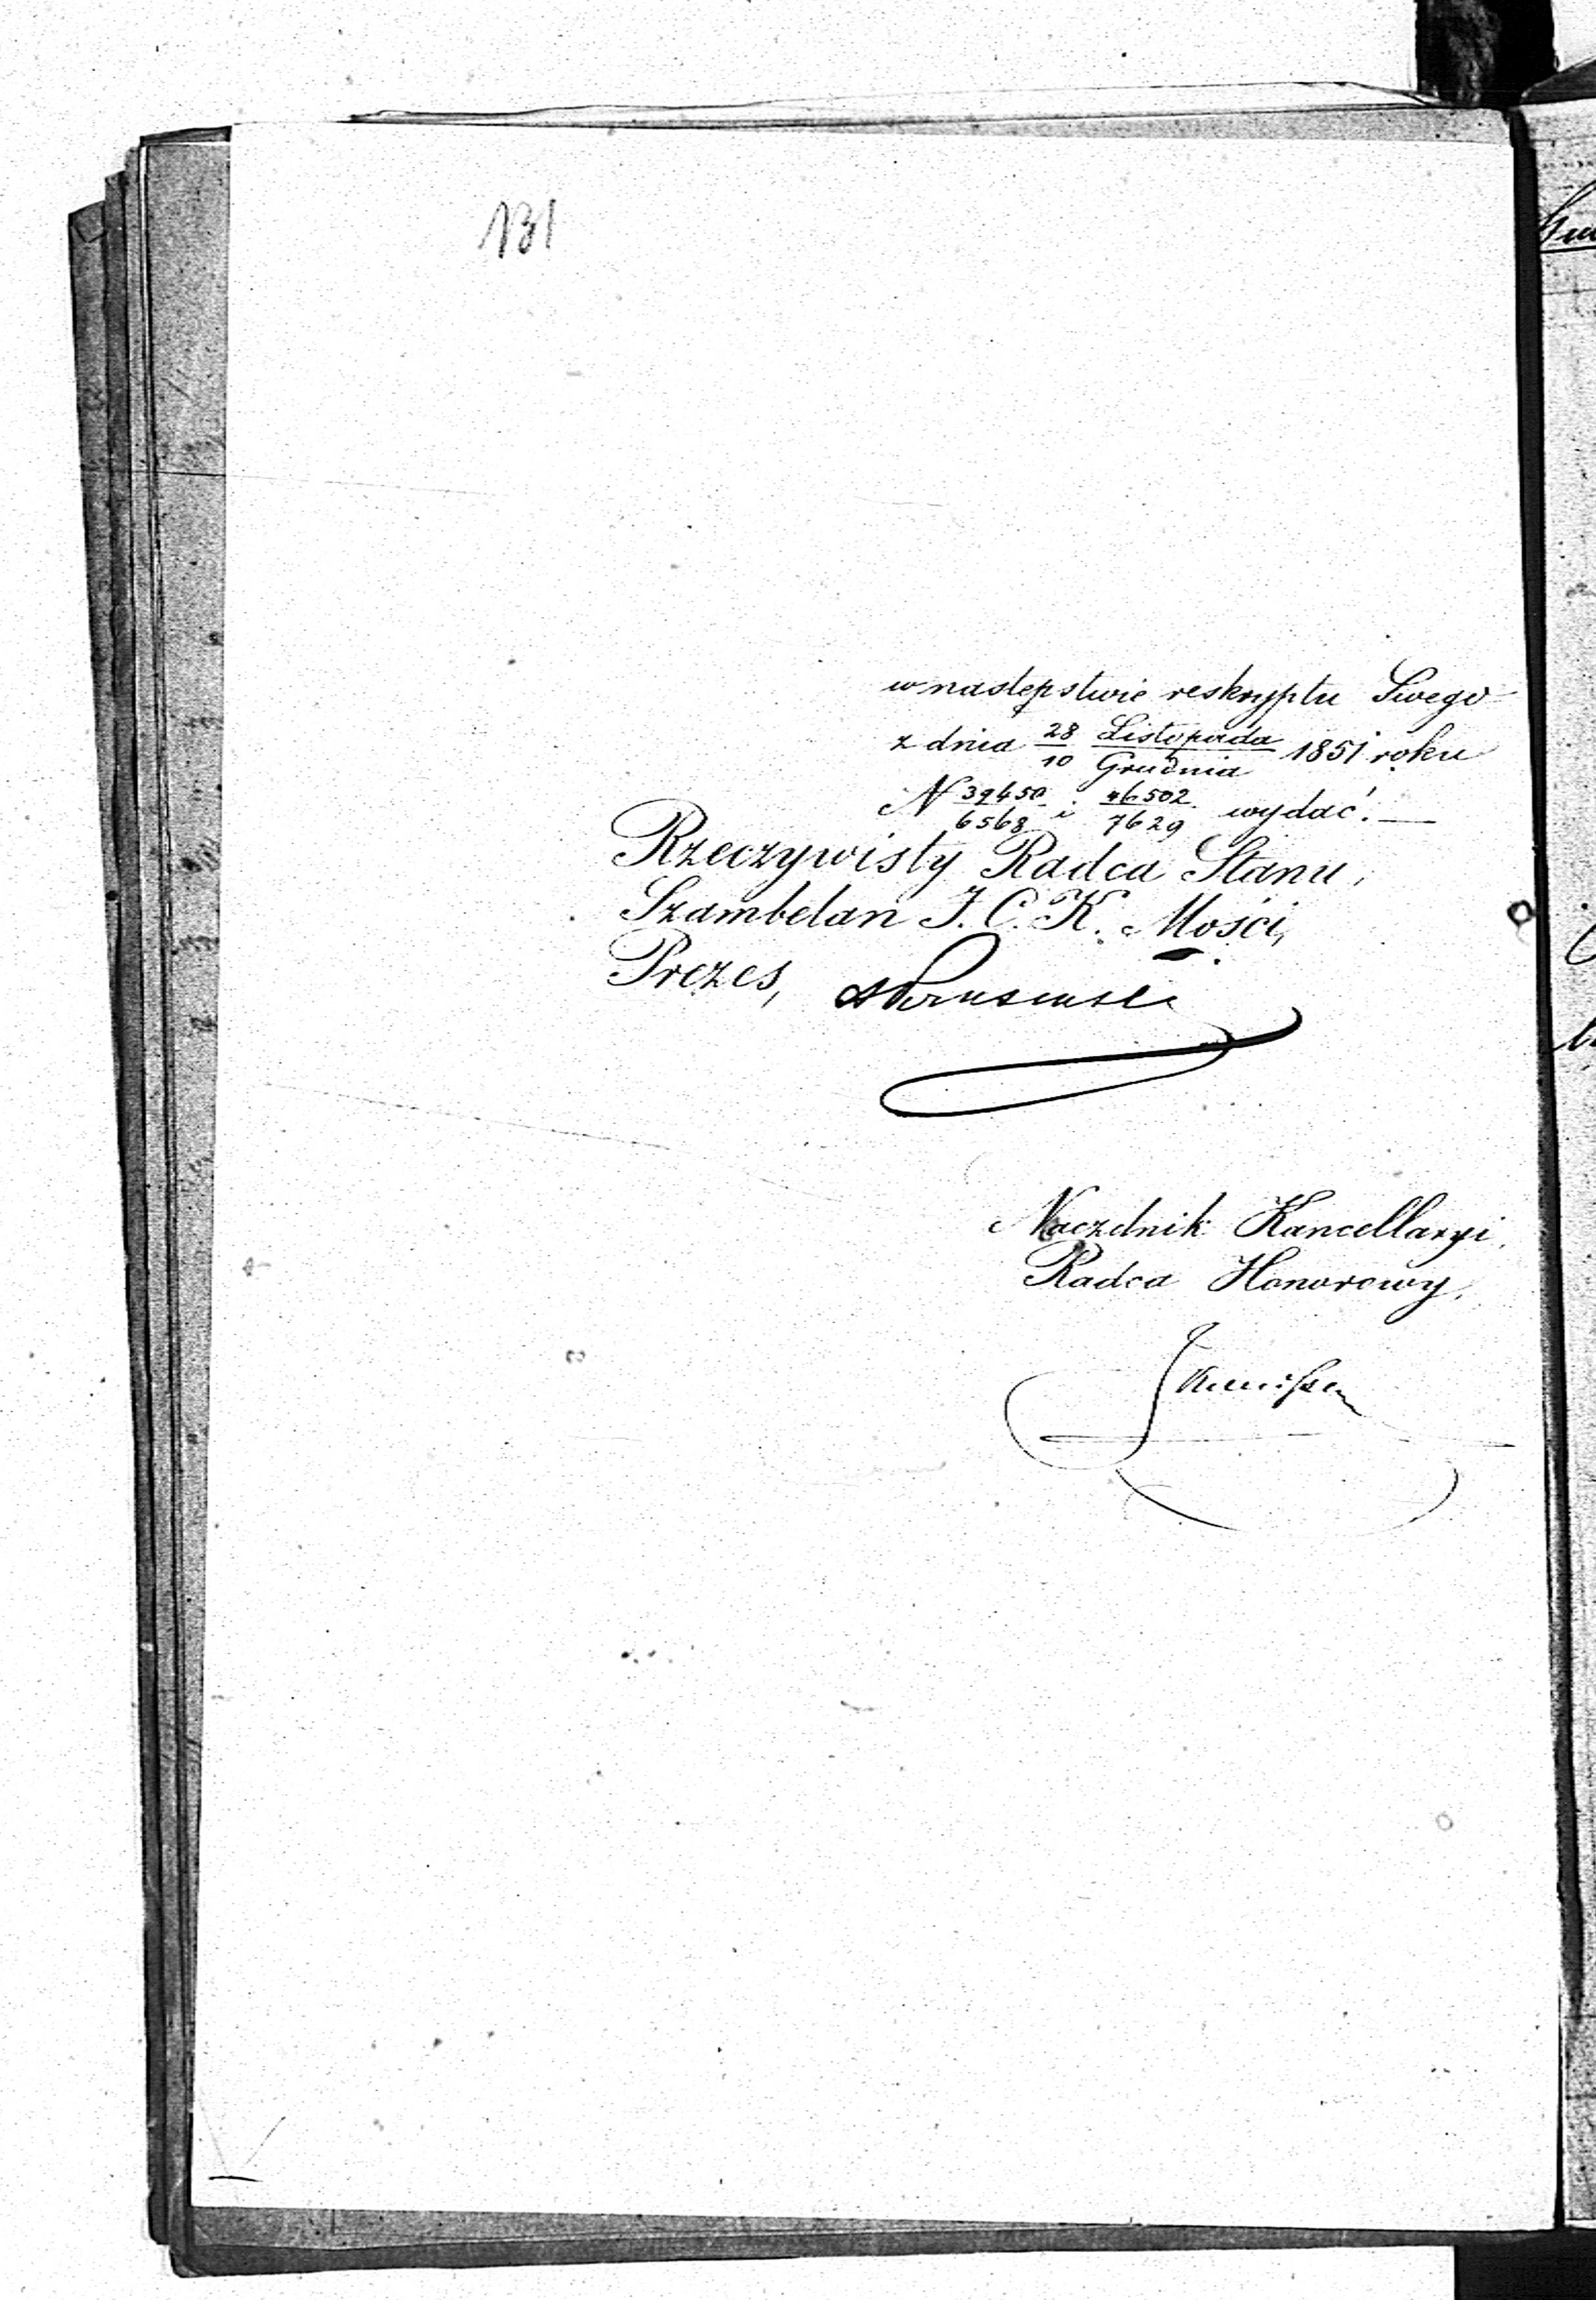 131
w następstwie reskryptu Swego
z dnia 28/10 Listopada/Grudnia 1851 roku
N 39450/6568 i 46502/7629 wydać.—
Rzeczywisty Radca Stanu,
Szambelan J. C. K. Mości,
Prezes,
Naczelnik Kancellaryi,
Radca Honorowy,